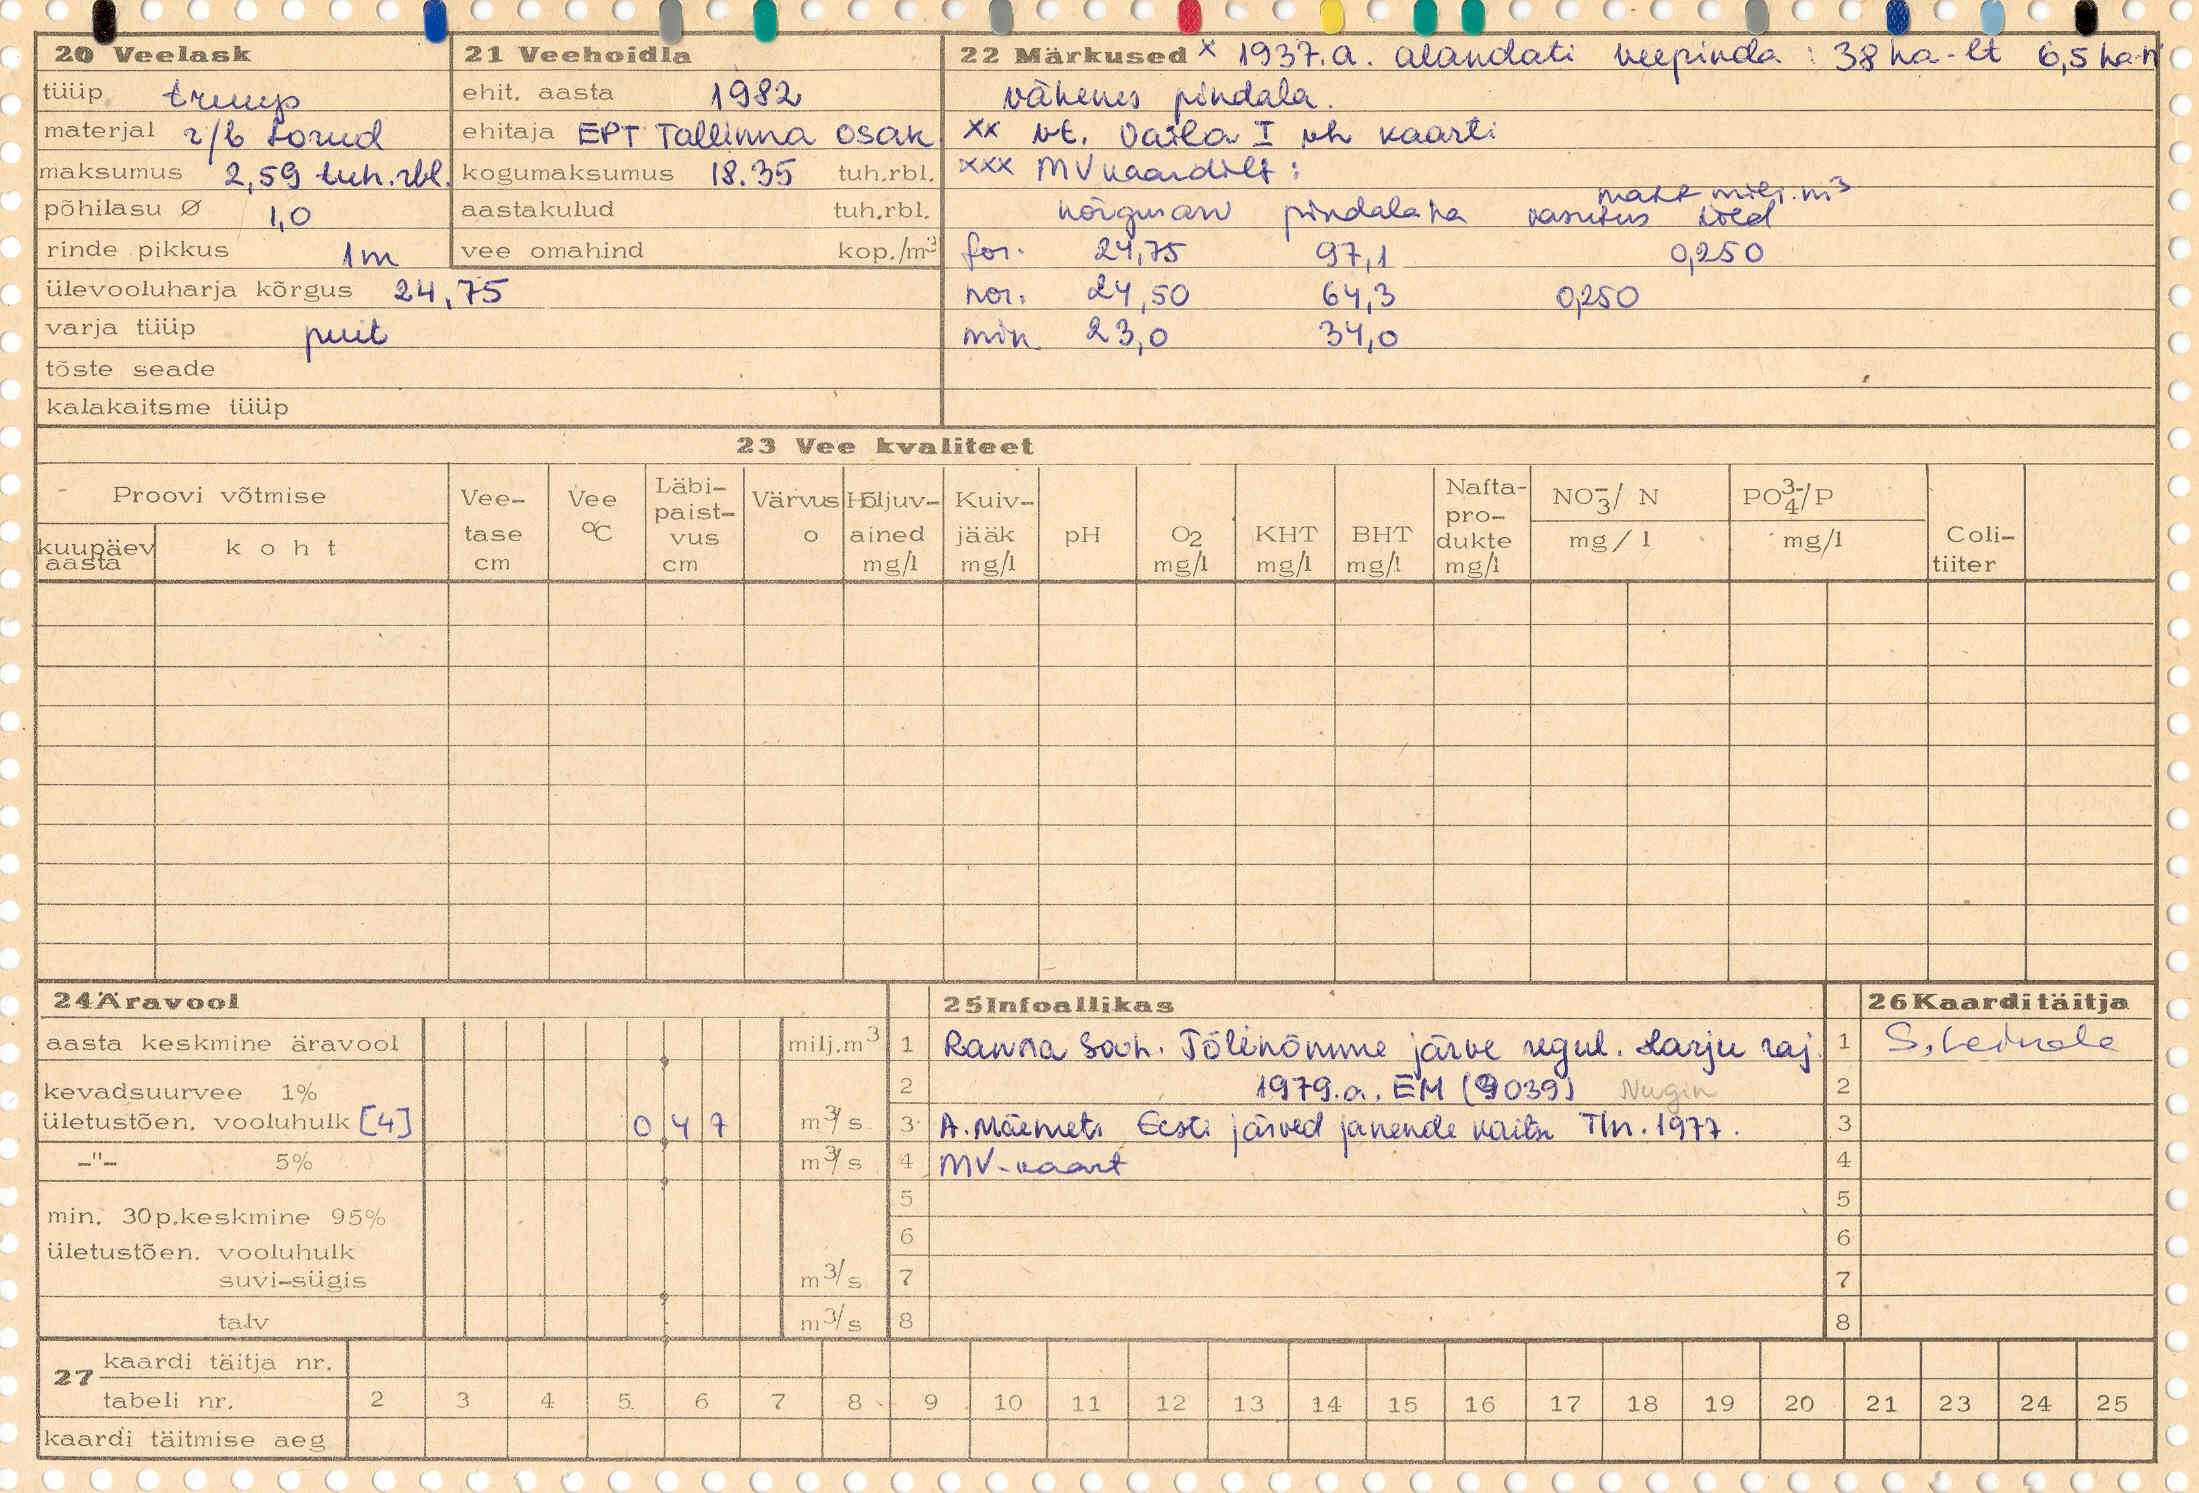 20 Veelask
tüüp truup
materjal r/b torud
maksumus 2,59 tuh.rbl.
põhilasu Ø 1,0
rinde pikkus 1m
ülevooluharja kõrgus 24,75
varja tüüp puit
tõste seade
kalakaitsme tüüp
21 Veehoidla
ehit. aasta 1982
ehitaja EPT Tallinna osak
kogumaksumus 18.35 tuh.rbl.
aastakulud tuh.rbl.
vee omahind kop./m³
22 Märkused x 1937.a. alandati veepinda : 38 ha-lt 6,5 ha-ni
vähenes pindala.
xx vt. Vaila I vh kaarti
xxx MV kaardilt :
maht milj.m³
kõrgusarv pindala ha kasutus üld
for. 24,75 97,1 0,250
nor. 24,50 64,3 0,250
min 23,0 34,0
23 Vee kvaliteet
Proovi võtmise
kuupäev aasta
koht
Vee-tase cm
Vee °C
Läbi-paist-vus cm
Värvus o
Hõljuv-ained mg/l
Kuiv-jääk mg/l
pH
O2 mg/l
KHT mg/l
BHT mg/l
Nafta-pro-dukte mg/l
NO3-/ N mg/l
PO4 3-/P mg/l
Coli-tiiter
24 Äravool
aasta keskmine äravool milj.m³
kevadsuurvee 1%
ületustõen. vooluhulk [4] 0 4 7 m³/s
-"- 5% m³/s
min. 30p.keskmine 95%
ületustõen. vooluhulk
suvi-sügis m³/s
talv m³/s
25 Infoallikas
1 Ranna sovh. Tõlinõmme järve regul. Harju raj.
2 1979.a. EM (9039) Nugin
3 A. Mäemets Eesti järved ja nende kaitse Tln. 1977.
4 MV-kaart
5
6
7
8
26 Kaarditäitja
1
2
3
4
5
6
7
8
27 kaardi täitja nr.
tabeli nr. 2 3 4 5 6 7 8 9 10 11 12 13 14 15 16 17 18 19 20 21 23 24 25
kaardi täitmise aeg